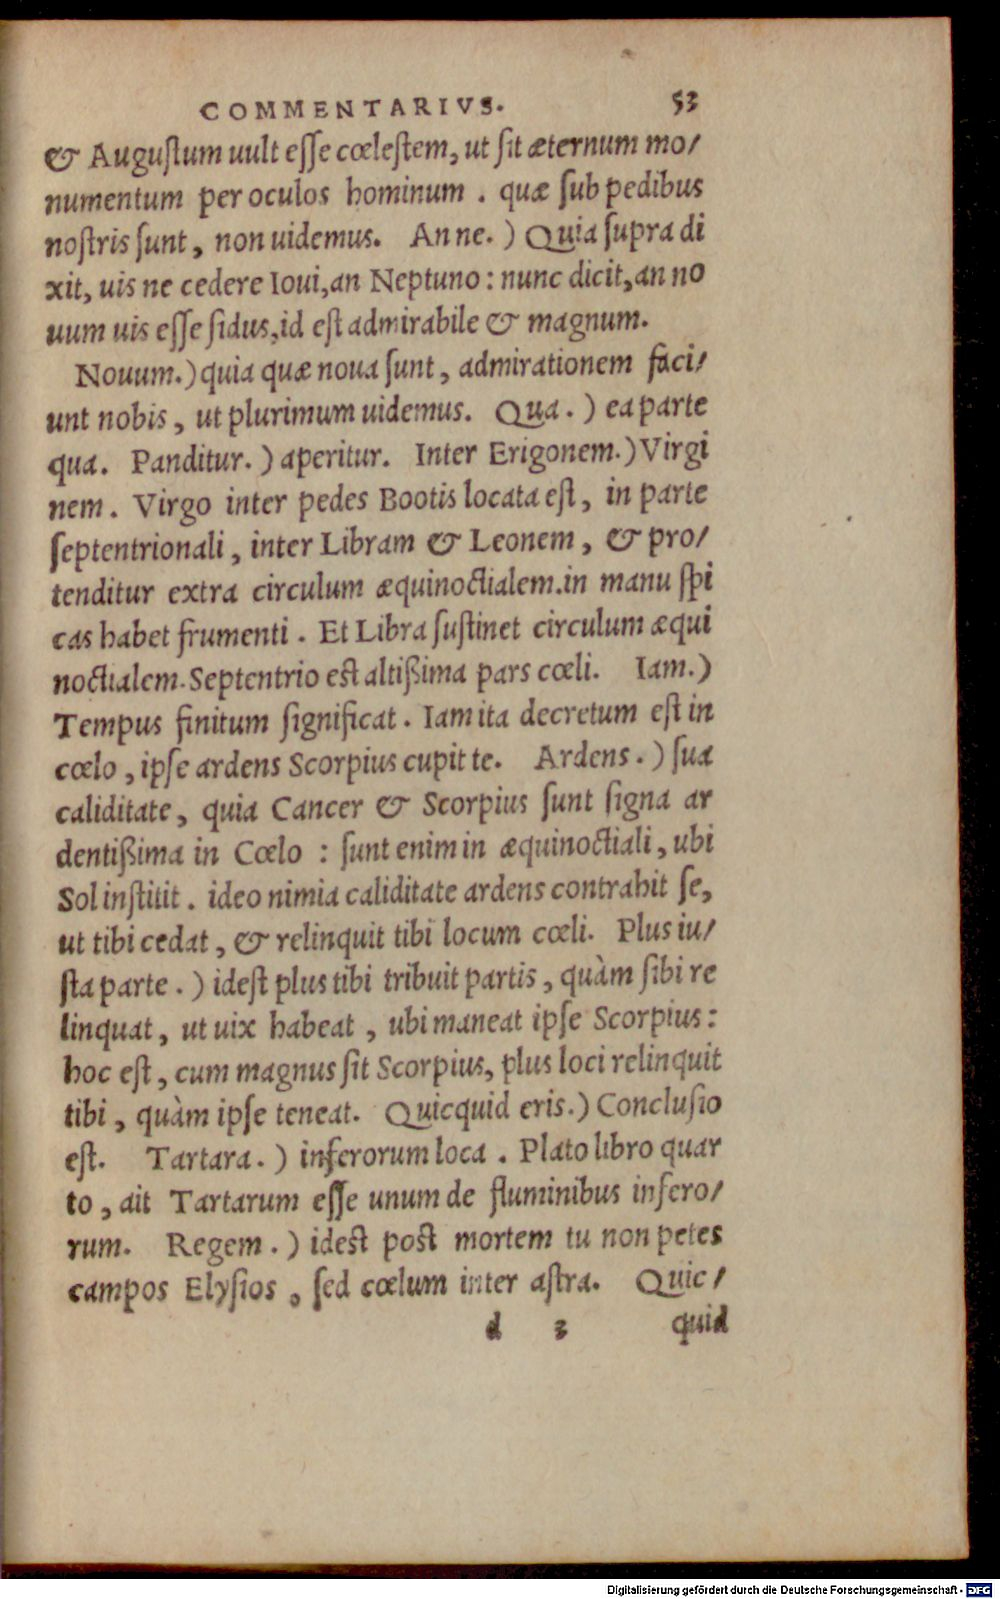 COMMENTARIVS. 53
& Augustum uult esse cœlestem, ut sit æternum mo/
numentum per oculos hominum . quæ sub pedibus
nostris sunt, non uidemus. An ne. ) Quia supra di
xit, uis ne cedere Ioui, an Neptuno : nunc dicit, an no
uum uis esse sidus, id est admirabile & magnum.
Nouum.) quia quæ noua sunt, admirationem faci/
unt nobis, ut plurimum uidemus. Qua . ) ea parte
qua. Panditur. ) aperitur. Inter Erigonem.) Virgi
nem. Virgo inter pedes Bootis locata est, in parte
septentrionali, inter Libram & Leonem, & pro/
tenditur extra circulum æquinoctialem. in manu spi
cas habet frumenti . Et Libra sustinet circulum æqui
noctialem. Septentrio est altißima pars cœli. Iam.)
Tempus finitum significat. Iam ita decretum est in
cœlo, ipse ardens Scorpius cupit te. Ardens . ) sua
caliditate, quia Cancer & Scorpius sunt signa ar
dentißima in Cœlo : sunt enim in æquinoctiali, ubi
Sol institit . ideo nimia caliditate ardens contrahit se,
ut tibi cedat, & relinquit tibi locum cœli. Plus iu/
sta parte . ) idest plus tibi tribuit partis, quàm sibi re
linquat, ut uix habeat, ubi maneat ipse Scorpius:
hoc est, cum magnus sit Scorpius, plus loci relinquit
tibi, quàm ipse teneat. Quicquid eris.) Conclusio
est. Tartara. ) inferorum loca . Plato libro quar
to, ait Tartarum esse unum de fluminibus infero/
rum. Regem . ) idest post mortem tu non petes
campos Elysios, sed cœlum inter astra. Quic/
d 3 quid
Digitalisierung gefördert durch die Deutsche Forschungsgemeinschaft - DFG